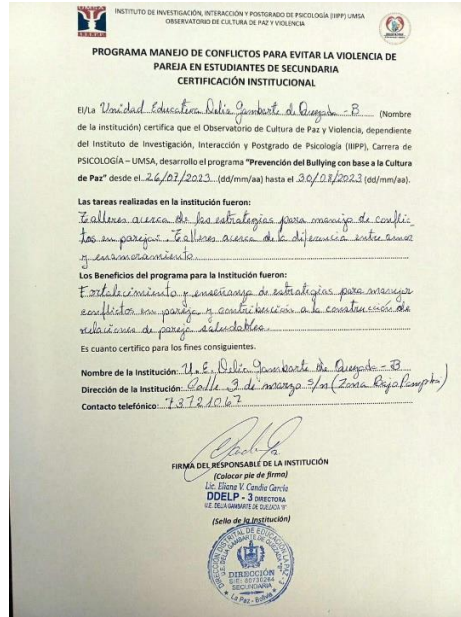 INSTITUTO DE INVESTIGACIÓN, INTERACCIÓN Y POSTGRADO DE PSICOLOGÍA (IIIPP) UMSA
OBSERVATORIO DE CULTURA DE PAZ Y VIOLENCIA
PROGRAMA MANEJO DE CONFLICTOS PARA EVITAR LA VIOLENCIA DE
PAREJA EN ESTUDIANTES DE SECUNDARIA
CERTIFICACIÓN INSTITUCIONAL
El/La Unidad Educativa Delia Gambarte de Quezada - B (Nombre
de la institución) certifica que el Observatorio de Cultura de Paz y Violencia, dependiente
del Instituto de Investigación, Interacción y Postgrado de Psicología (IIIPP), Carrera de
PSICOLOGÍA – UMSA, desarrollo el programa "Prevención del Bullying con base a la Cultura
de Paz" desde el 26/07/2023 (dd/mm/aa) hasta el 30/08/2023 (dd/mm/aa).
Las tareas realizadas en la institución fueron:
Talleres acerca de las estrategias para manejo de conflic-
tos en parejas. Talleres acerca de la diferencia entre amor
y enamoramiento.
Los Beneficios del programa para la Institución fueron:
Fortalecimiento y enseñanza de estrategias para manejar
conflictos en pareja y contribución a la construcción de
relaciones de pareja saludables.
Es cuanto certifico para los fines consiguientes.
Nombre de la Institución: U.E. Delia Gambarte de Quezada - B
Dirección de la Institución: Calle 3 de marzo S/n (Zona Bajo Pampa)
Contacto telefónico: 73721067
FIRMA DEL RESPONSABLE DE LA INSTITUCIÓN
(Colocar pie de firma)
Lic. Eliana V. Candia García
DDELP - 3 DIRECTORA
U.E. DELIA GAMBARTE DE QUEZADA "B"
(Sello de la Institución)
DIRECCIÓN DISTRITAL DE EDUCACIÓN LA PAZ - 3
U.E. DELIA GAMBARTE DE QUEZADA "B"
DIRECCIÓN
SECUNDARIA
La Paz - Bolivia